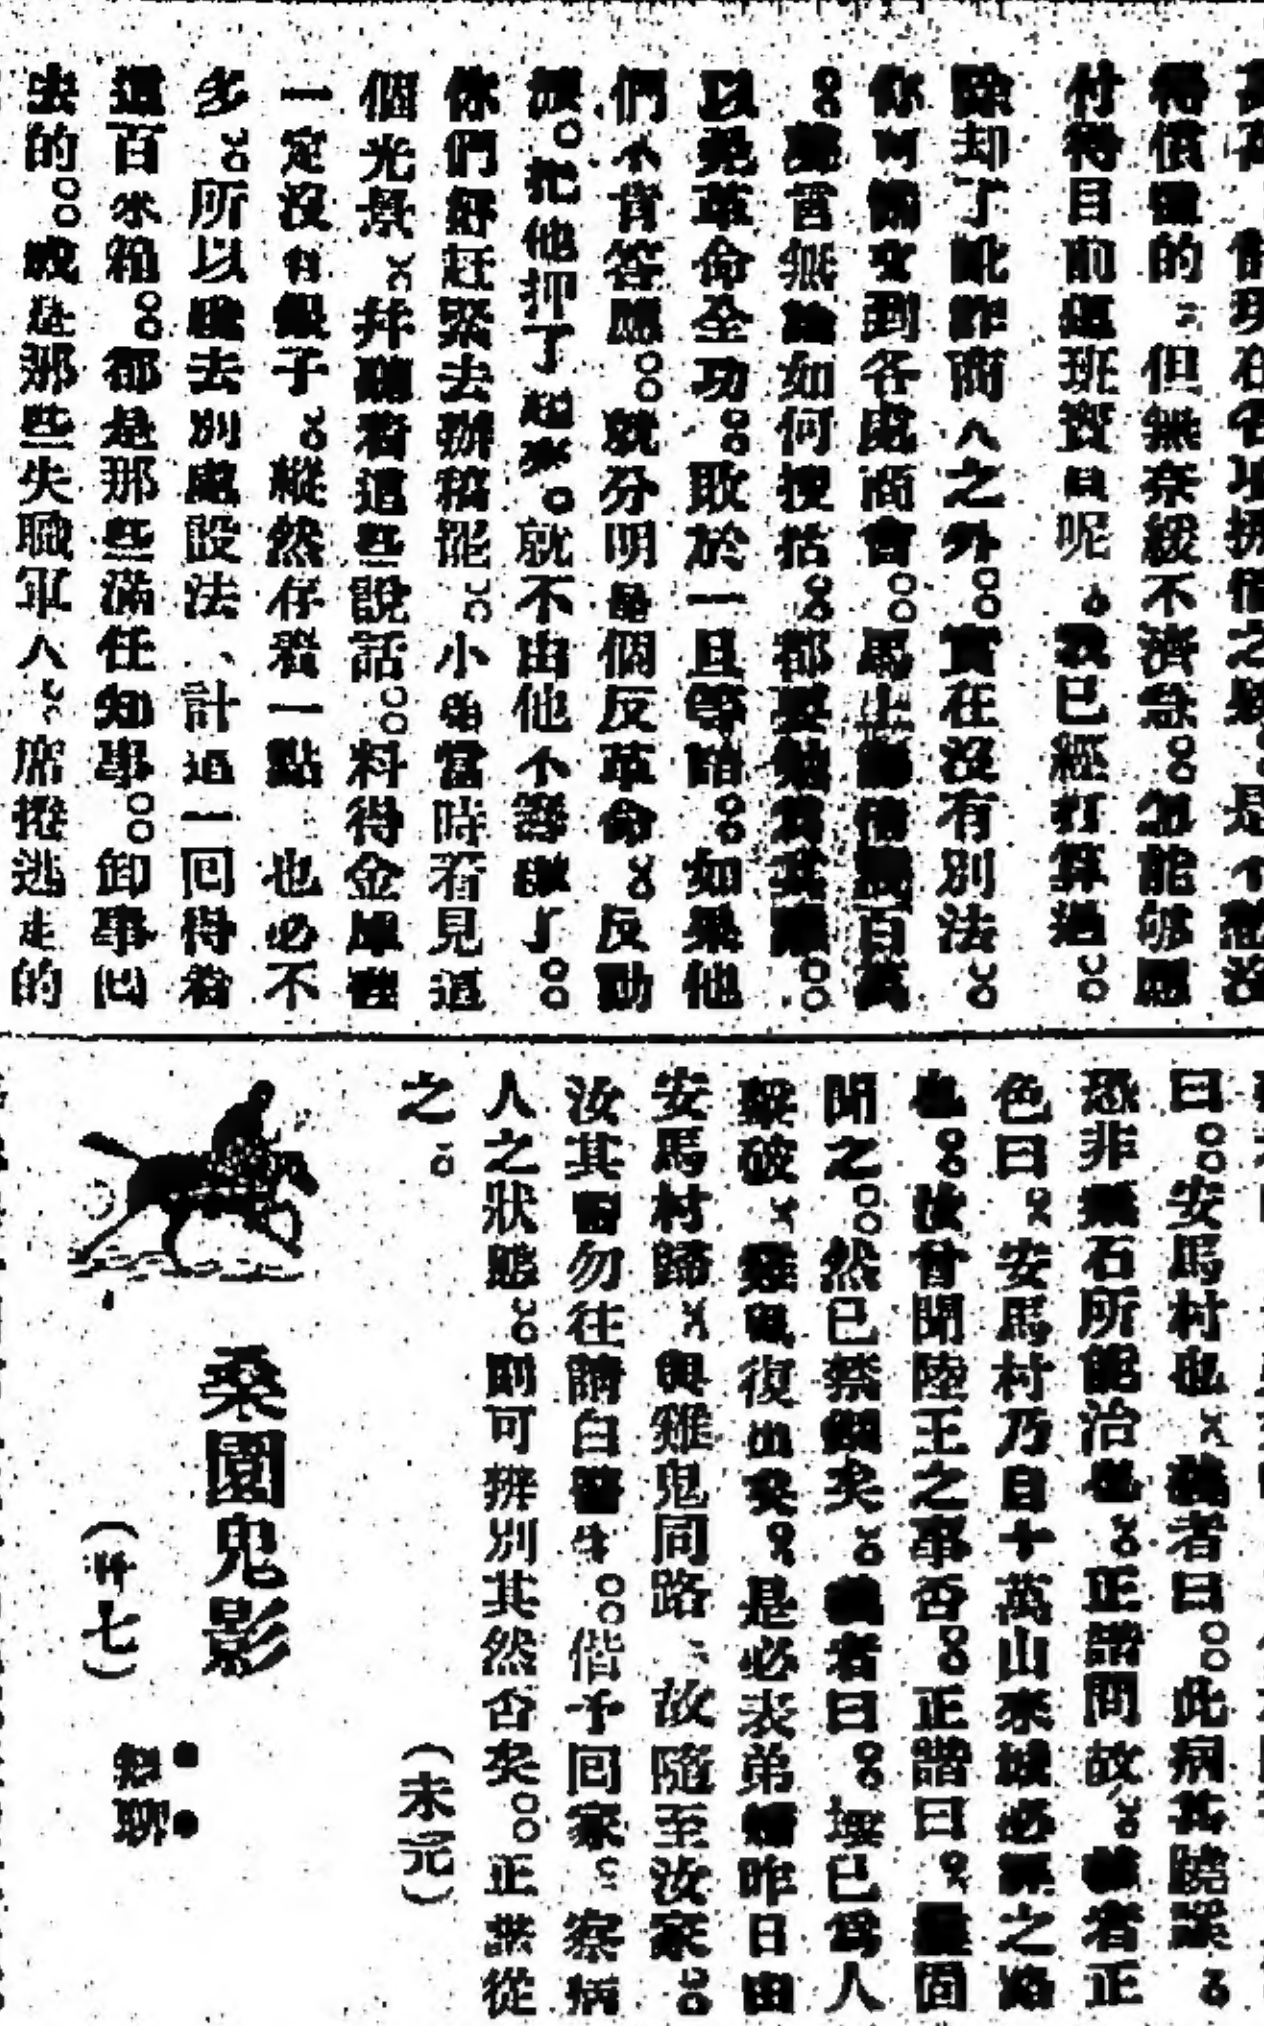 得慣的。但無奈緩不濟急。怎能够應
付得目前這班寶貝呢。我已經打算過。
除却了訛詐商人之外。實在沒有別法。
你可備文到各處商會。馬上籌借幾百萬
。無論如何搜括。都要勉爲其難。
以免革命全功。敗於一旦等語。如果他
們不肯答應。就分明是個反革命。反動
派。把他押了起來。就不由他不籌繳了。
你們好赶緊去辦稿罷。小弟當時看見這
個光景。幷聽着這些說話。料得金庫裡
一定沒有銀子。縱然存着一點 也必不
多。所以去別處設法、計過一回得着
這百氺箱。都是那些滿任知事。卸事回
去的。或是那些失職軍人。席捲逃走的
曰。安馬村也。者曰。此病甚蹺蹊。
恐非藥石所能治也。正諧問故。者正
色曰。安馬村乃自十萬山來城必經之路
也。汝曾聞陸王之事否。正諧曰。固
聞之。然已禁錮矣。者曰。壜已爲人
擊破。雞鬼復出矣。是必表弟婦昨日由
安馬村歸。與雞鬼同路。故隨至汝家。
汝其勿往請白醫生。偕予回家。察病
人之狀態。則可辨別其然否矣。正諧從
之。
（未完）
桑園鬼影
（卅七）
聊